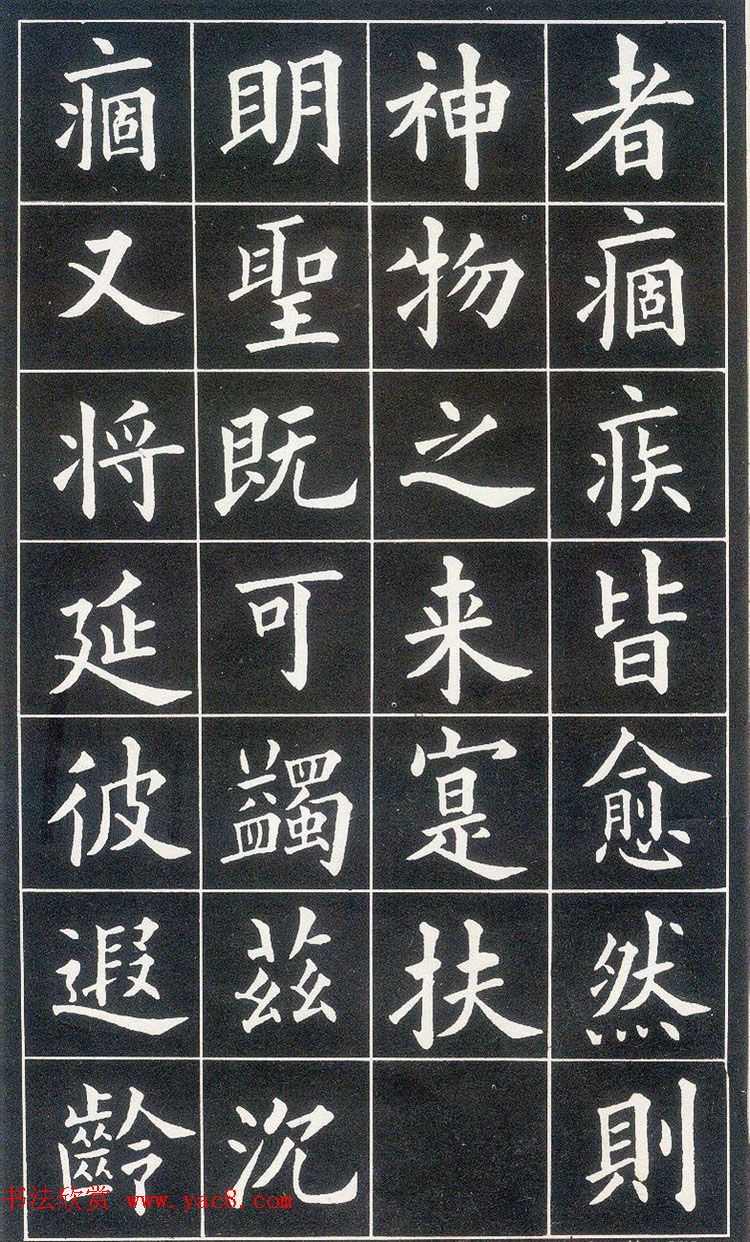 者痼疾皆愈然則
神物之来寔扶
明聖既可蠲茲沉
痼又将延彼遐齡
书法欣赏 www.yac8.com